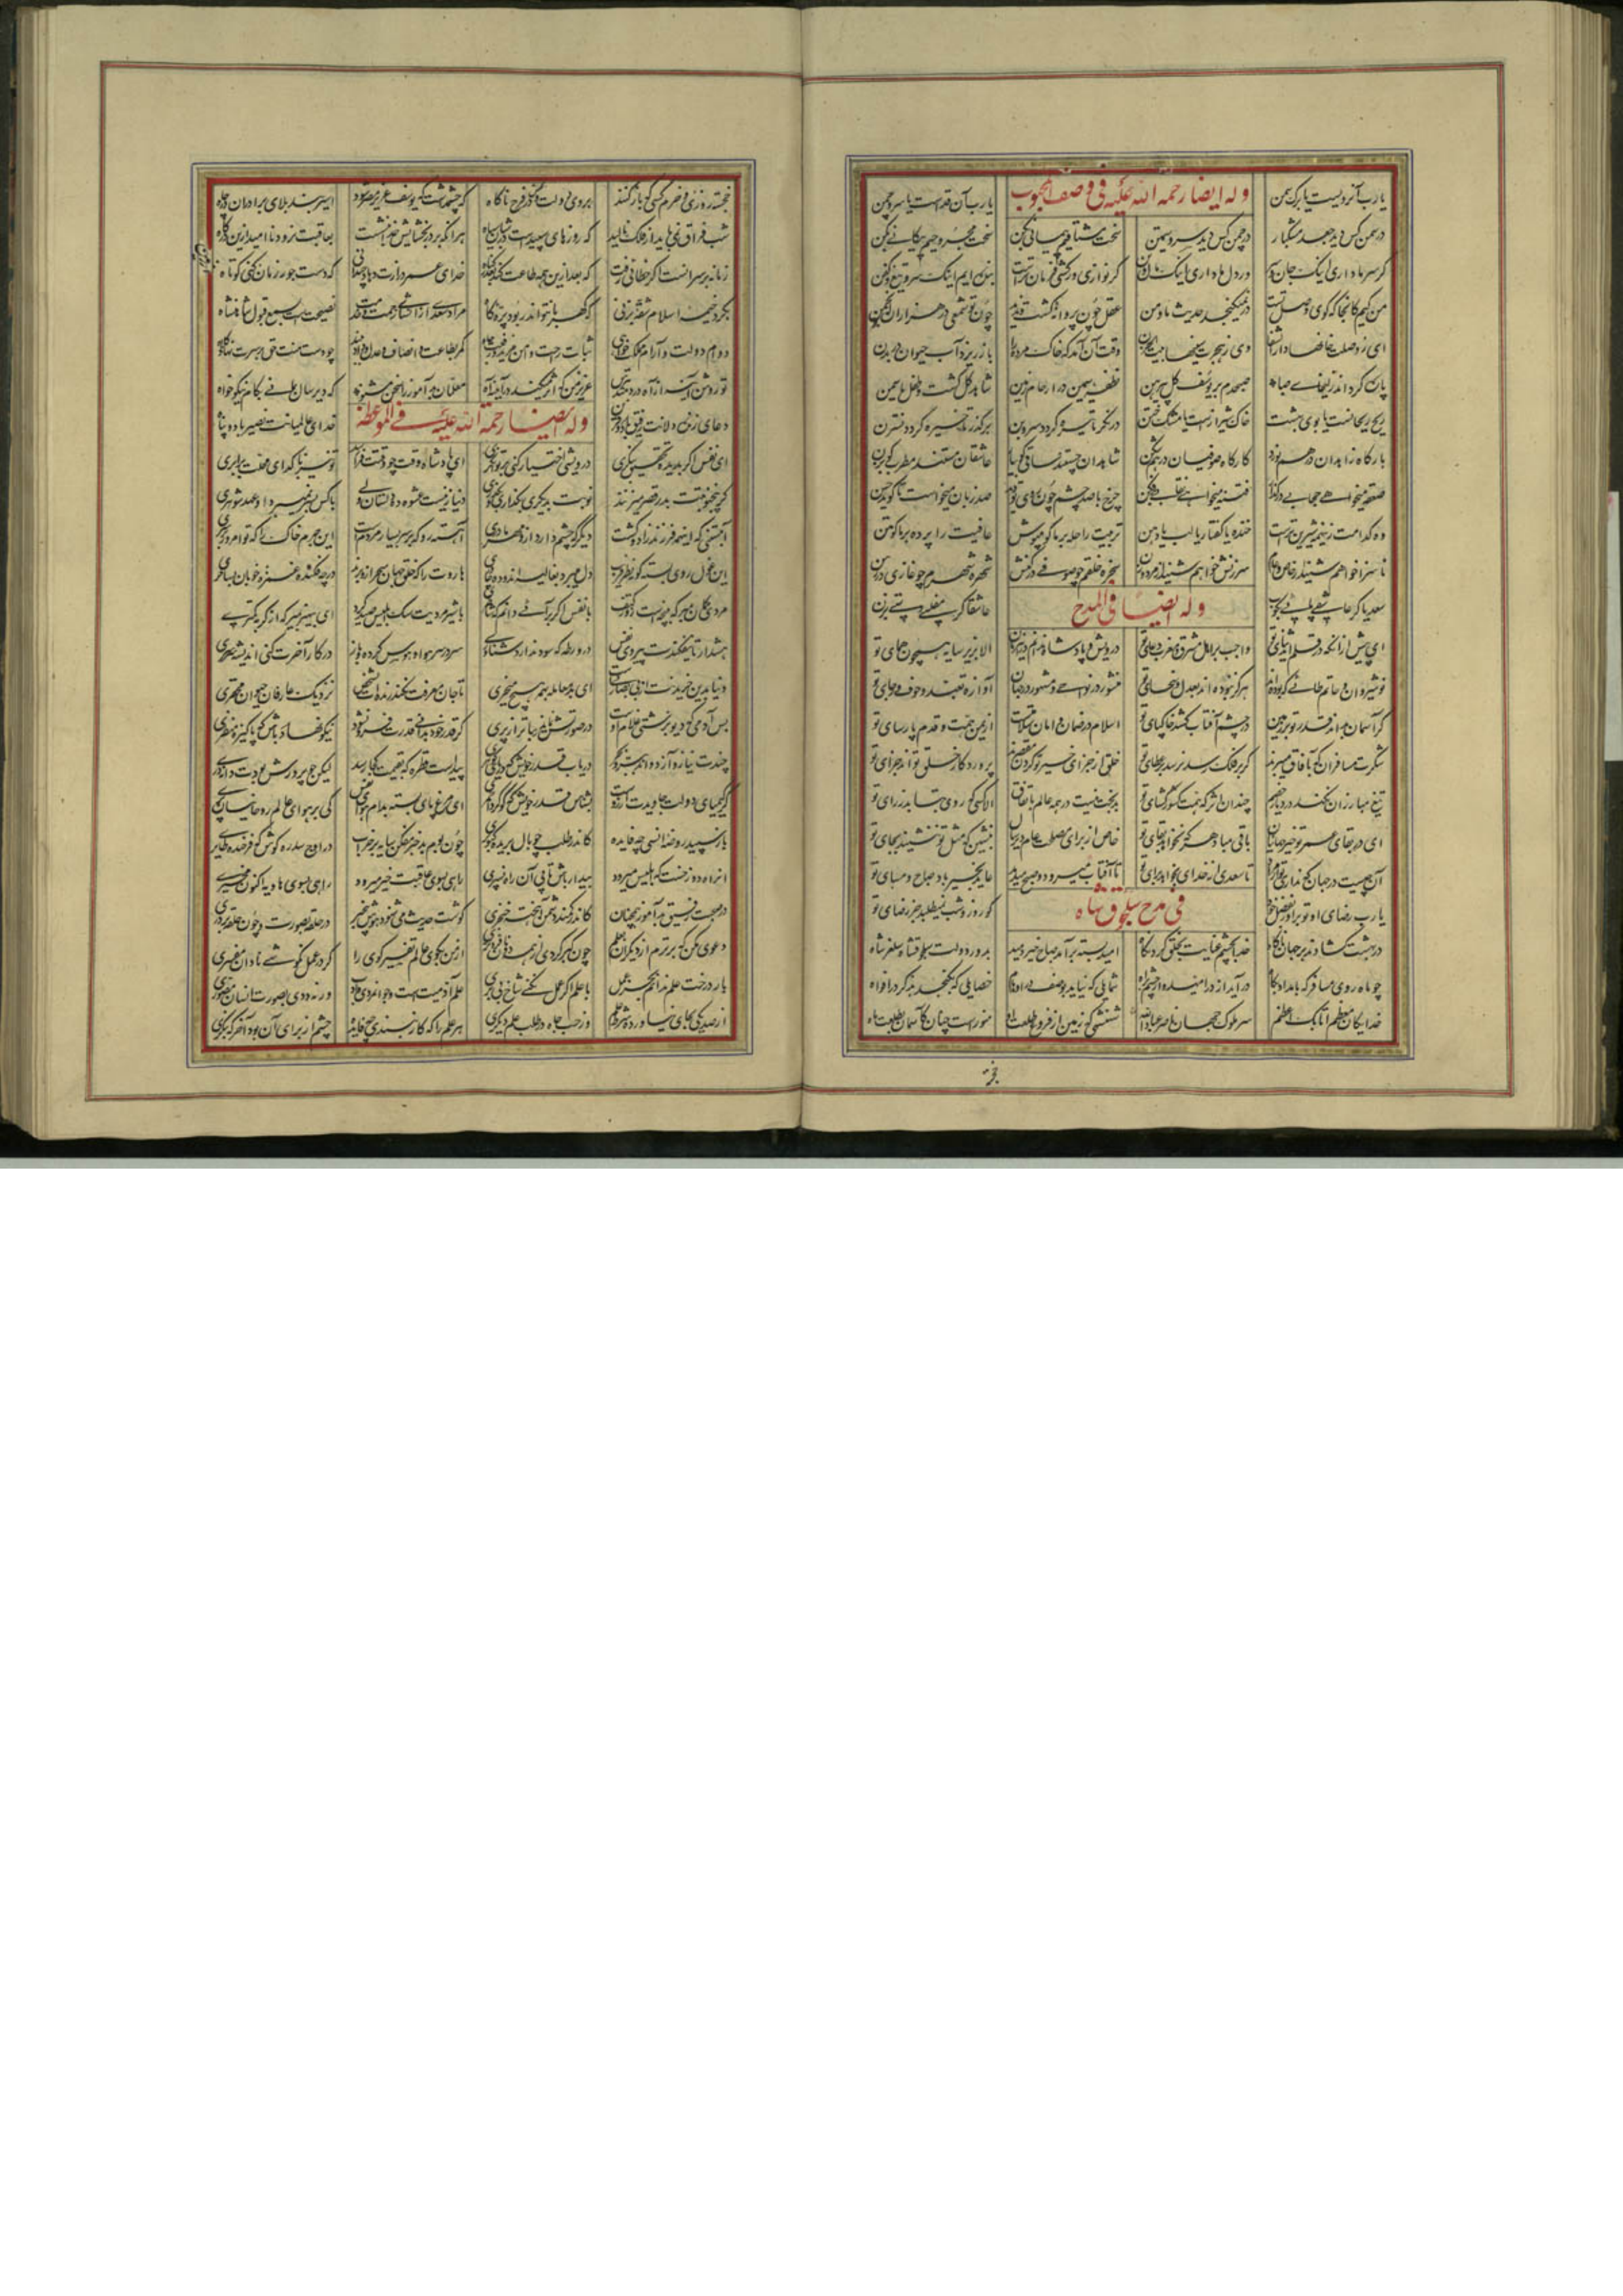 وله ایضا رحمة الله علیه فی وصف المحبوب
یارب آن رویست یا برگ سمن یارب آن قدست یا سرو چمن
در سمن کس دید جعد مشکبار در چمن کس دید سرو سیمتن سخت مشتاقیم پیمانی بکن سخت مجروحیم پیکانی بکن
گر سر ما داری اینک جان و سر ور دل ما داری اینک مال و تن گر نوازی ور کشی فرمان تراست بنده ایم اینک سر و تیغ و کفن
من کیم کانجا که کوی وصل تست در نمیگنجد حدیث ما و من عقل چون پروانه گشت و ندید چون تو شمعی در هزاران انجمن
ای ز وصلت خانقها دار الشفا وی ز هجرت بیتها بیت الحزن وقت آن آمد که خاک مرده را باز ریزد آب حیوان در بدن
پاره گرداند زلیخای صبا صبحدم بر یوسف گل پیرهن نطفه سیمین در ارحام زمین شاهد گل گشت و طفل یاسمن
ریح ریحانست یا بوی بهشت خاک شیرازست یا مشک ختن در نگر تا تیره گردد سروبن برگذر تا خیره گردد نسترن
بارگاه زاهدان در هم نورد کارگاه صوفیان در هم شکن شاهدان چستند ساقی گو بیا عاشقان مستند مطرب گو بزن
صعقه میخواهی حجابی در گذار فتنه میخواهی نقابی برفکن چرخ با صد چشم چون روی تو دید صد زبان میخواست تا گوید حسن
وه کدامت زینهمه شیرین ترست خنده یا گفتار یا لب یا دهن تربیت را حله بر ما گو مپوش عافیت را پرده بر ما گو متن
ناسزا خواهم شنید از خاص و عام سرزنش خواهم شنید از مرد و زن سخره خلقم چو صوفی در کنش شهره شهرم چو غازی در رسن
سعدیا گر عاشقی پایی بکوب عاشقا گر مفلسی دستی بزن
وله ایضا فی المدح
ای بیش از آنکه در قلم آید ثنای تو واجب بر اهل مشرق و مغرب دعای تو درویش و پادشاه ندانم درین زمان الا بزیر سایه همچون همای تو
نوشیروان و حاتم طائی که بوده اند هرگز نبوده اند بعدل و سخای تو منشور در نواحی و مشهور در جهان آوازه تعبد و خوف و رجای تو
گر آسمان بداند قدر تو بر زمین در چشم آفتاب کشد خاک پای تو اسلام در ضمان و امان سلامتست از یمن همت و قدم پارسای تو
شکرت مسافران که بآفاق میبرند گر بر فلک رسد نرسد بر عطای تو خلق از جزای خیر تو کردن مقصرند پروردگار خلق تواند جزای تو
تیغ مبارزان نکند در دیار خصم چندان اثر که همت کشور گشای تو بدبخت نیست در همه عالم باتفاق الا کسی که روی بتابد ز رای تو
ای در بقای عمر تو خیر جهانیان باقی مباد هر که نخواهد بقای تو خاص از برای مصلحت عام دیر سال بنشین که مثل تو ننشیند بجای تو
آن چیست در جهان که نداری تو آن مراد تا سعدی از خدای بخواهد برای تو تا آفتاب میرود و صبح میدمد عاید بخیر باد صباح و مسای تو
یارب رضای او تو برآور بفضل خود کو روز و شب نمیطلبد جز رضای تو
فی مدح سلجوق شاه
در بهشت گشادند بر جهان ناگاه خدا بچشم عنایت بخلق کرد نگاه امید بسته برآمد صباح خیر دمید بدور دولت سلجوقشاه سلغر شاه
چو ماه روی مسافر که بامداد پگاه درآید از در امیدوار چشم براه شمایلی که نیاید بوصف در اوهام خصایلی که نگنجد بذکر در افواه
خدایگان معظم اتابک اعظم سر ملوک جهان ناصر عباد الله شهنشهی که زمین از فروغ طلعت او منورست چنان کآسمان بطلعت ماه
خجسته روزی خرم کسی که باز کنند بروی دولت فرج ناگاه که چشم داشت که یوسف عزیز مصر شود اسیر بند بلای برادران در چاه
شب فراق نمی باید از فلک نالید که روزهای سپیدست در شبان سیاه هر آنکه بر در بخشایش خدا بنشست بعاقبت نرود ناامید ازین درگاه
زمانه بر سر آنست گر خطائی رفت که بعد ازین همه طاعت کند بعذر گناه خدای عمر درازت دهاد چندانی که دست جور زمان کنی کوتاه
بگرد خیمه اسلام شقه بزنی که کهربا نتواند ربود پره کاه مراد سعدی از انشای زحمت خدمت نصیحتست بسمع قبول شاهنشاه
دوام دولت و آرام مملکت خواهی ثبات راحت و امن و مزید رفعت و جاه کمر بطاعت و انصاف و عدل و داد ببند چو دست منت حق بر سرت نهاد کلاه
تو روشن آینه از آه دردمند بترس عزیز من که اثر میکند در آینه آه معلمان بدآموز را سخن مشنو که دیر سال بمانی بکام نیکو خواه
دعای زنده دلانت رفیق باد و قرین خدای عالمیانت نصیر باد و پناه
وله ایضا رحمة الله علیه فی الموعظة
ای نفس اگر بدیده تحقیق بنگری درویشی اختیار کنی بر توانگری ای پادشاه وقت چو وقتت فرا رسد تو نیز با گدای محلت برابری
گر پنج نوبتت بدر قصر میزنند نوبت بدیگری بگذاری و بگذری دنیا زنیست عشوه ده و دلستان ولی با کس بسر نمیبرد او عهد شوهری
آبستنی که اینهمه فرزند زاد و کشت دیگر که چشم دارد ازو مهر مادری آهسته رو که بر سر بسیار مردمست این جرم خاک را که تو امروز بر سری
این غول روی بسته کوته نظر فریب دل میبرد بغالیه اندوده چادری هاروت را که خلق جهان سحر ازو برند در چه فکند غمزه خوبان بساحری
مردی گمان مبر که بپنجه است و زور کتف با نفس اگر برآئی دانم که شاطری با شیرمردیت سگ ابلیس صید کرد ای بی هنر بمیر که از گربه کمتری
هشدار تا نیفکندت پیروی نفس در ورطه که سود ندارد شناوری سر در سر هوا و هوس کرده و ناز در کار آخرت کنی اندیشه سرسری
دنیا بدین خریدنت از بی بصارتیست ای بدمعامله بهمه هیچ میخری تا جان معرفت نکند زنده ات شخص نزدیک عارفان حیوان محقری
بس آدمی که دیو بزشتی غلام اوست ور صورتش نماید زیباتر از پری گر قدر خود بدانی قدرت فزون شود نیکو نهاد باش که پاکیزه منظری
چندت نیاز و آز دواند ببر و بحر دریاب قدر خویش که دریای گوهری پیداست قطره که بقیمت کجا رسد لیکن چو پرورش بودت دانه دری
گر کیمیای دولت جاویدت آرزوست بشناس قدر خویش که گوگرد احمری ای مرغ پای بسته بدام هوای نفس کی بر هوای عالم روحانیان پری
باز سپید روضه انسی چه فایده کاندر طلب چو بال بریده کبوتری چون بوم بدخبر مفکن سایه بر خراب در اوج سدره کوش که فرخنده طایری
آن راه دوزخست که ابلیس میرود بیدار باش تا پی آن راه نسپری راهی بسوی عاقبت خیر میرود راهی بسوی هاویه اکنون مخیری
در صحبت رفیق بدآموز همچنان کاندر کمند دشمن آهخته خنجری گوشت حدیث میشنود هوش بیخبر در حلقه بصورت و چون حلقه بر دری
دعوی مکن که برترم از دیگران بعلم چون کبر کردی از همه دونان فروتری از من بگوی عالم تفسیر گوی را گر در عمل نکوشی نادان مفسری
بار درخت علم ندانم بجز عمل با علم اگر عمل نکنی شاخ بی بری علم آدمیتست و جوانمردی و ادب ورنه ددی بصورت انسان مصوری
از صد یکی بجای نیاورده شرط علم وز حب جاه در طلب علم دیگری هر علم را که کار نبندی چه فایده چشم از برای آن بود آخر که بنگری